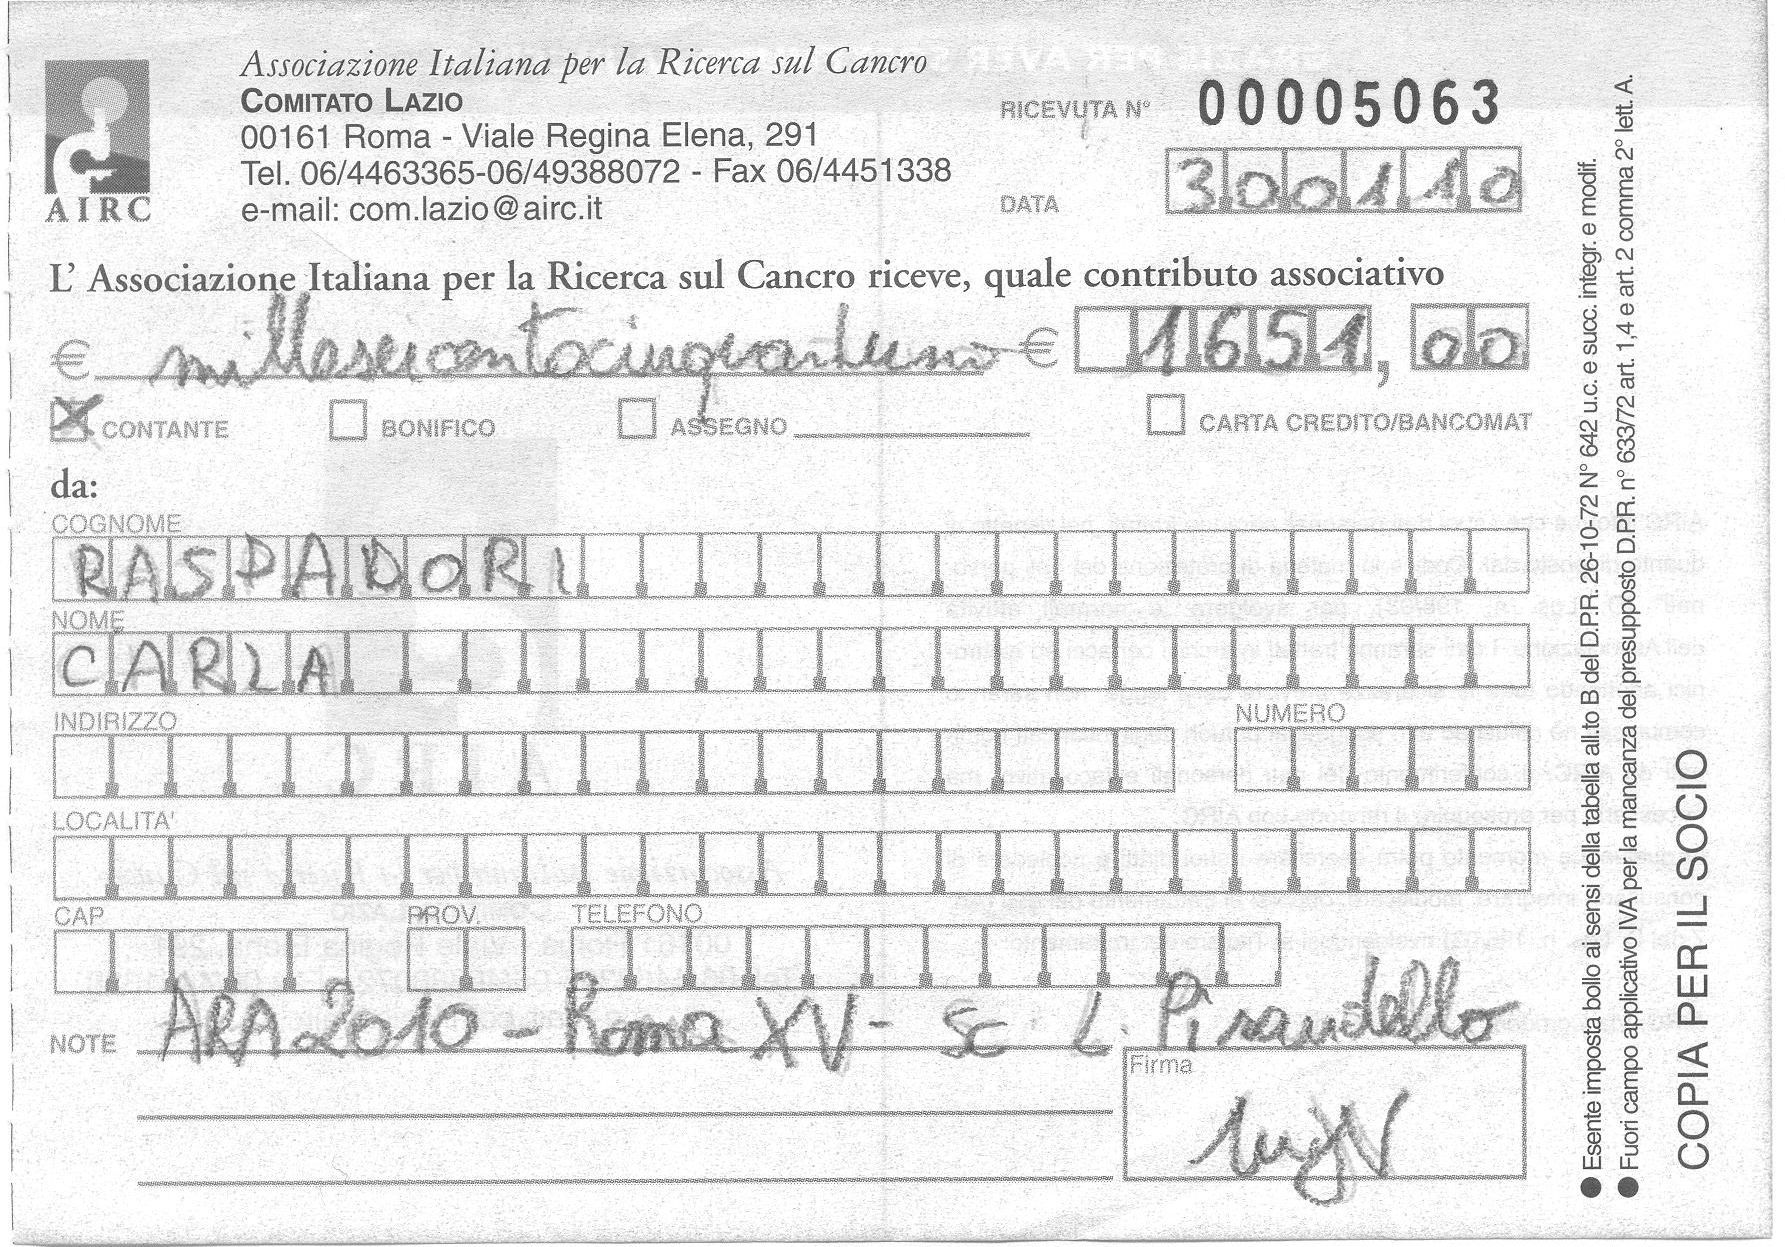 Associazione Italiana per la Ricerca sul Cancro
COMITATO LAZIO
00161 Roma - Viale Regina Elena, 291
Tel. 06/4463365-06/49388072 - Fax 06/4451338
e-mail: com.lazio@airc.it
AIRC
RICEVUTA N° 00005063
DATA 300110
L' Associazione Italiana per la Ricerca sul Cancro riceve, quale contributo associativo
€ milleseicentocinquantuno € 1651,00
CONTANTE BONIFICO ASSEGNO CARTA CREDITO/BANCOMAT
da:
COGNOME
RASPADORI
NOME
CARLA
INDIRIZZO NUMERO
LOCALITA'
CAP PROV. TELEFONO
NOTE ARA 2010 - Roma XV - Sc L. Pirandello
Firma
● Esente imposta bollo ai sensi della tabella all.to B del D.P.R. 26-10-72 N° 642 u.c. e succ. integr. e modif.
● Fuori campo applicativo IVA per la mancanza del presupposto D.P.R. n° 633/72 art. 1,4 e art. 2 comma 2° lett. A.
COPIA PER IL SOCIO